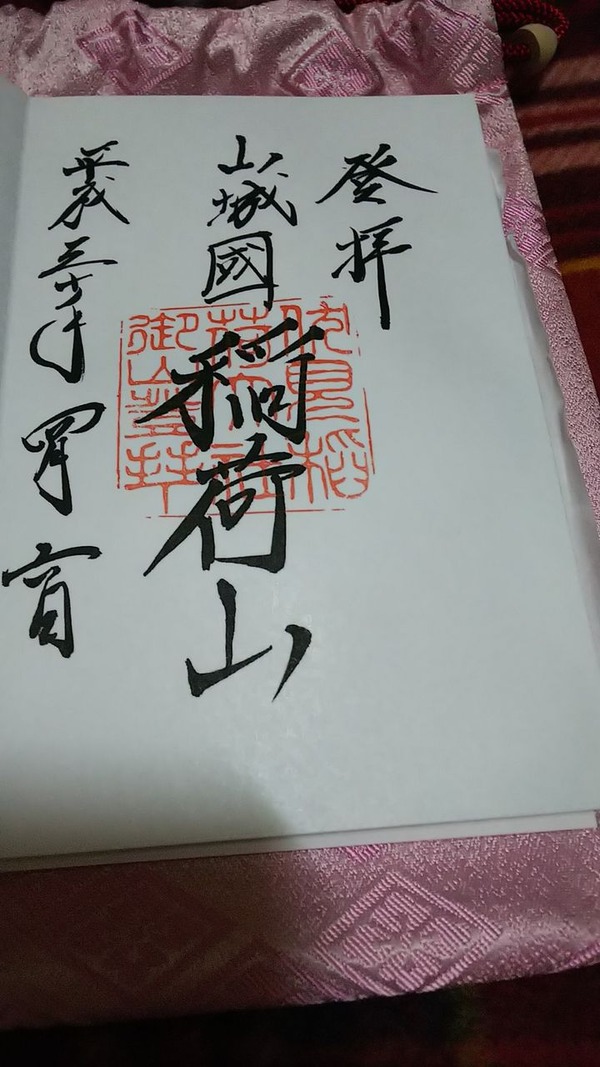 登拝
山城國
稲荷山
伏見稲
荷大社
御山登拝
平成三十年四月